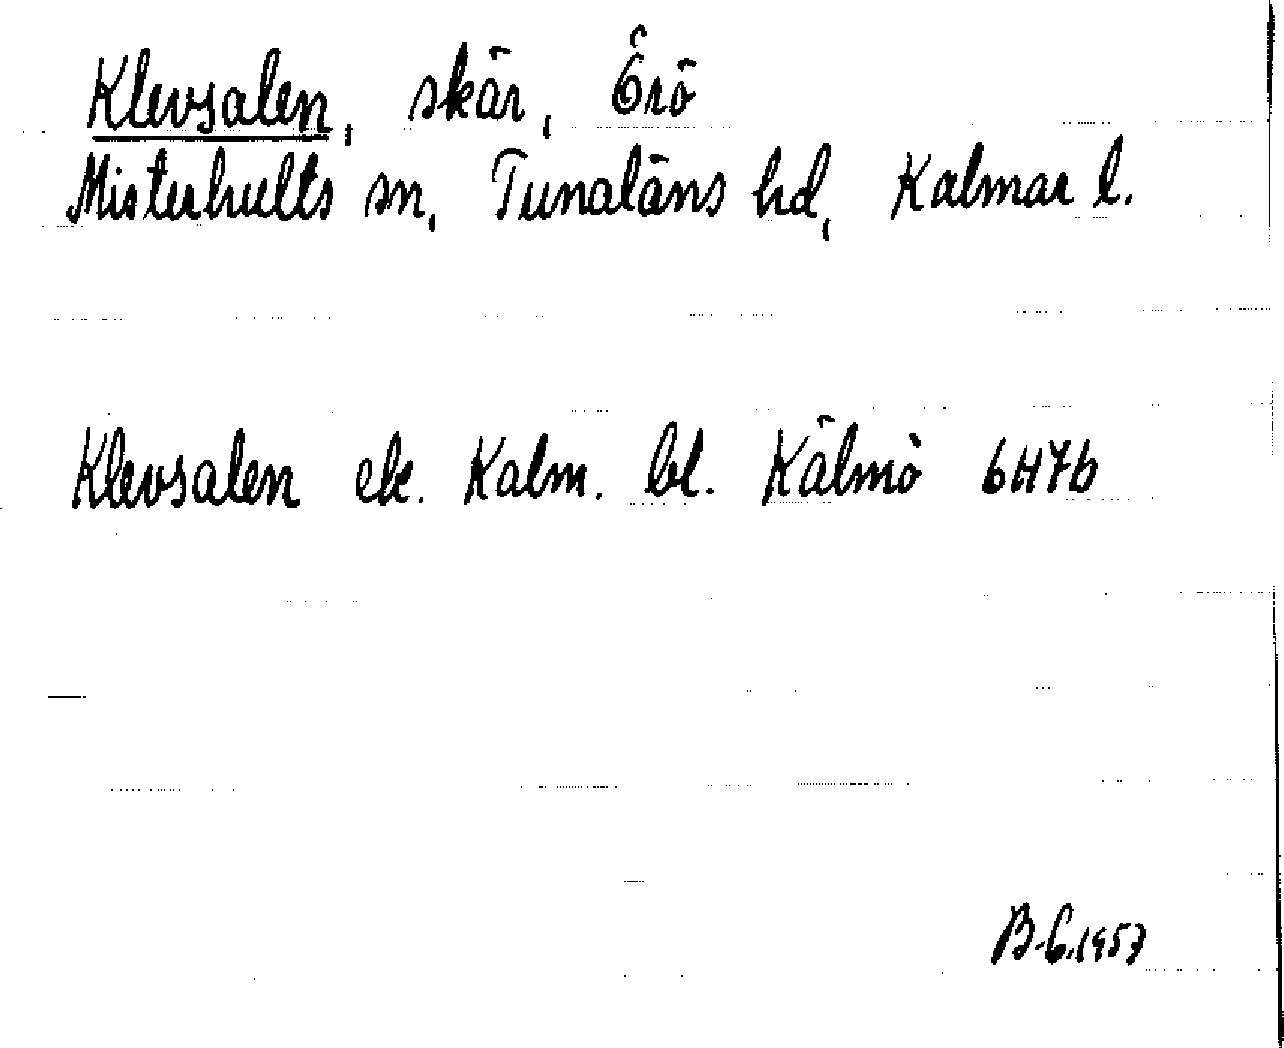 Klevsalen, skär, Örö
Misterhults sn, Tunaläns hd, Kalmar l.
Klevsalen ek. Kalm. bl. Kälmö 6H7b
B-G.1957